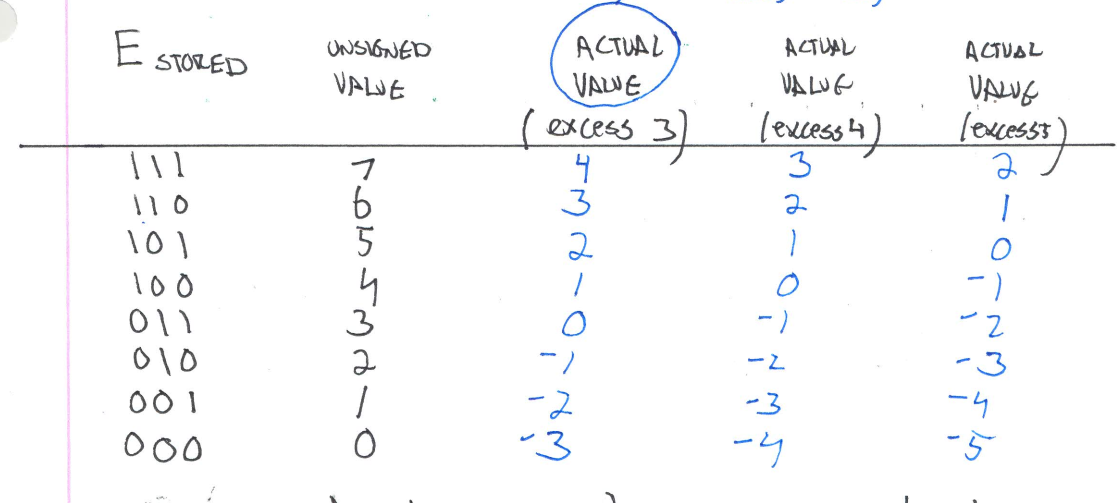 E STORED UNSIGNED VALUE ACTUAL VALUE (excess 3) ACTUAL VALUE (excess 4) ACTUAL VALUE (excess 5)
111 7 4 3 2
110 6 3 2 1
101 5 2 1 0
100 4 1 0 -1
011 3 0 -1 -2
010 2 -1 -2 -3
001 1 -2 -3 -4
000 0 -3 -4 -5